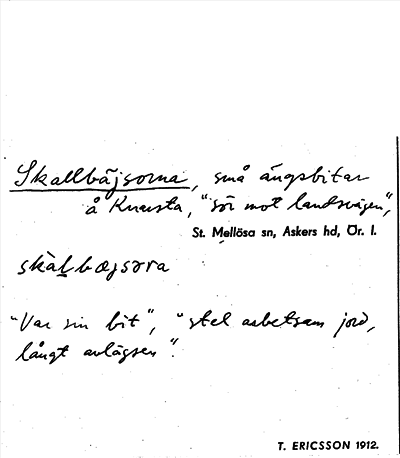 Skallbäjsorna, små ängsbitar
å Knavsta, "sör mot landsvägen",
St. Mellösa sn, Askers hd, Ör. l.
skàlbæjsơra
"Var sin bit", "stel arbetsam jord,
långt avlägsen".
T. ERICSSON 1912.